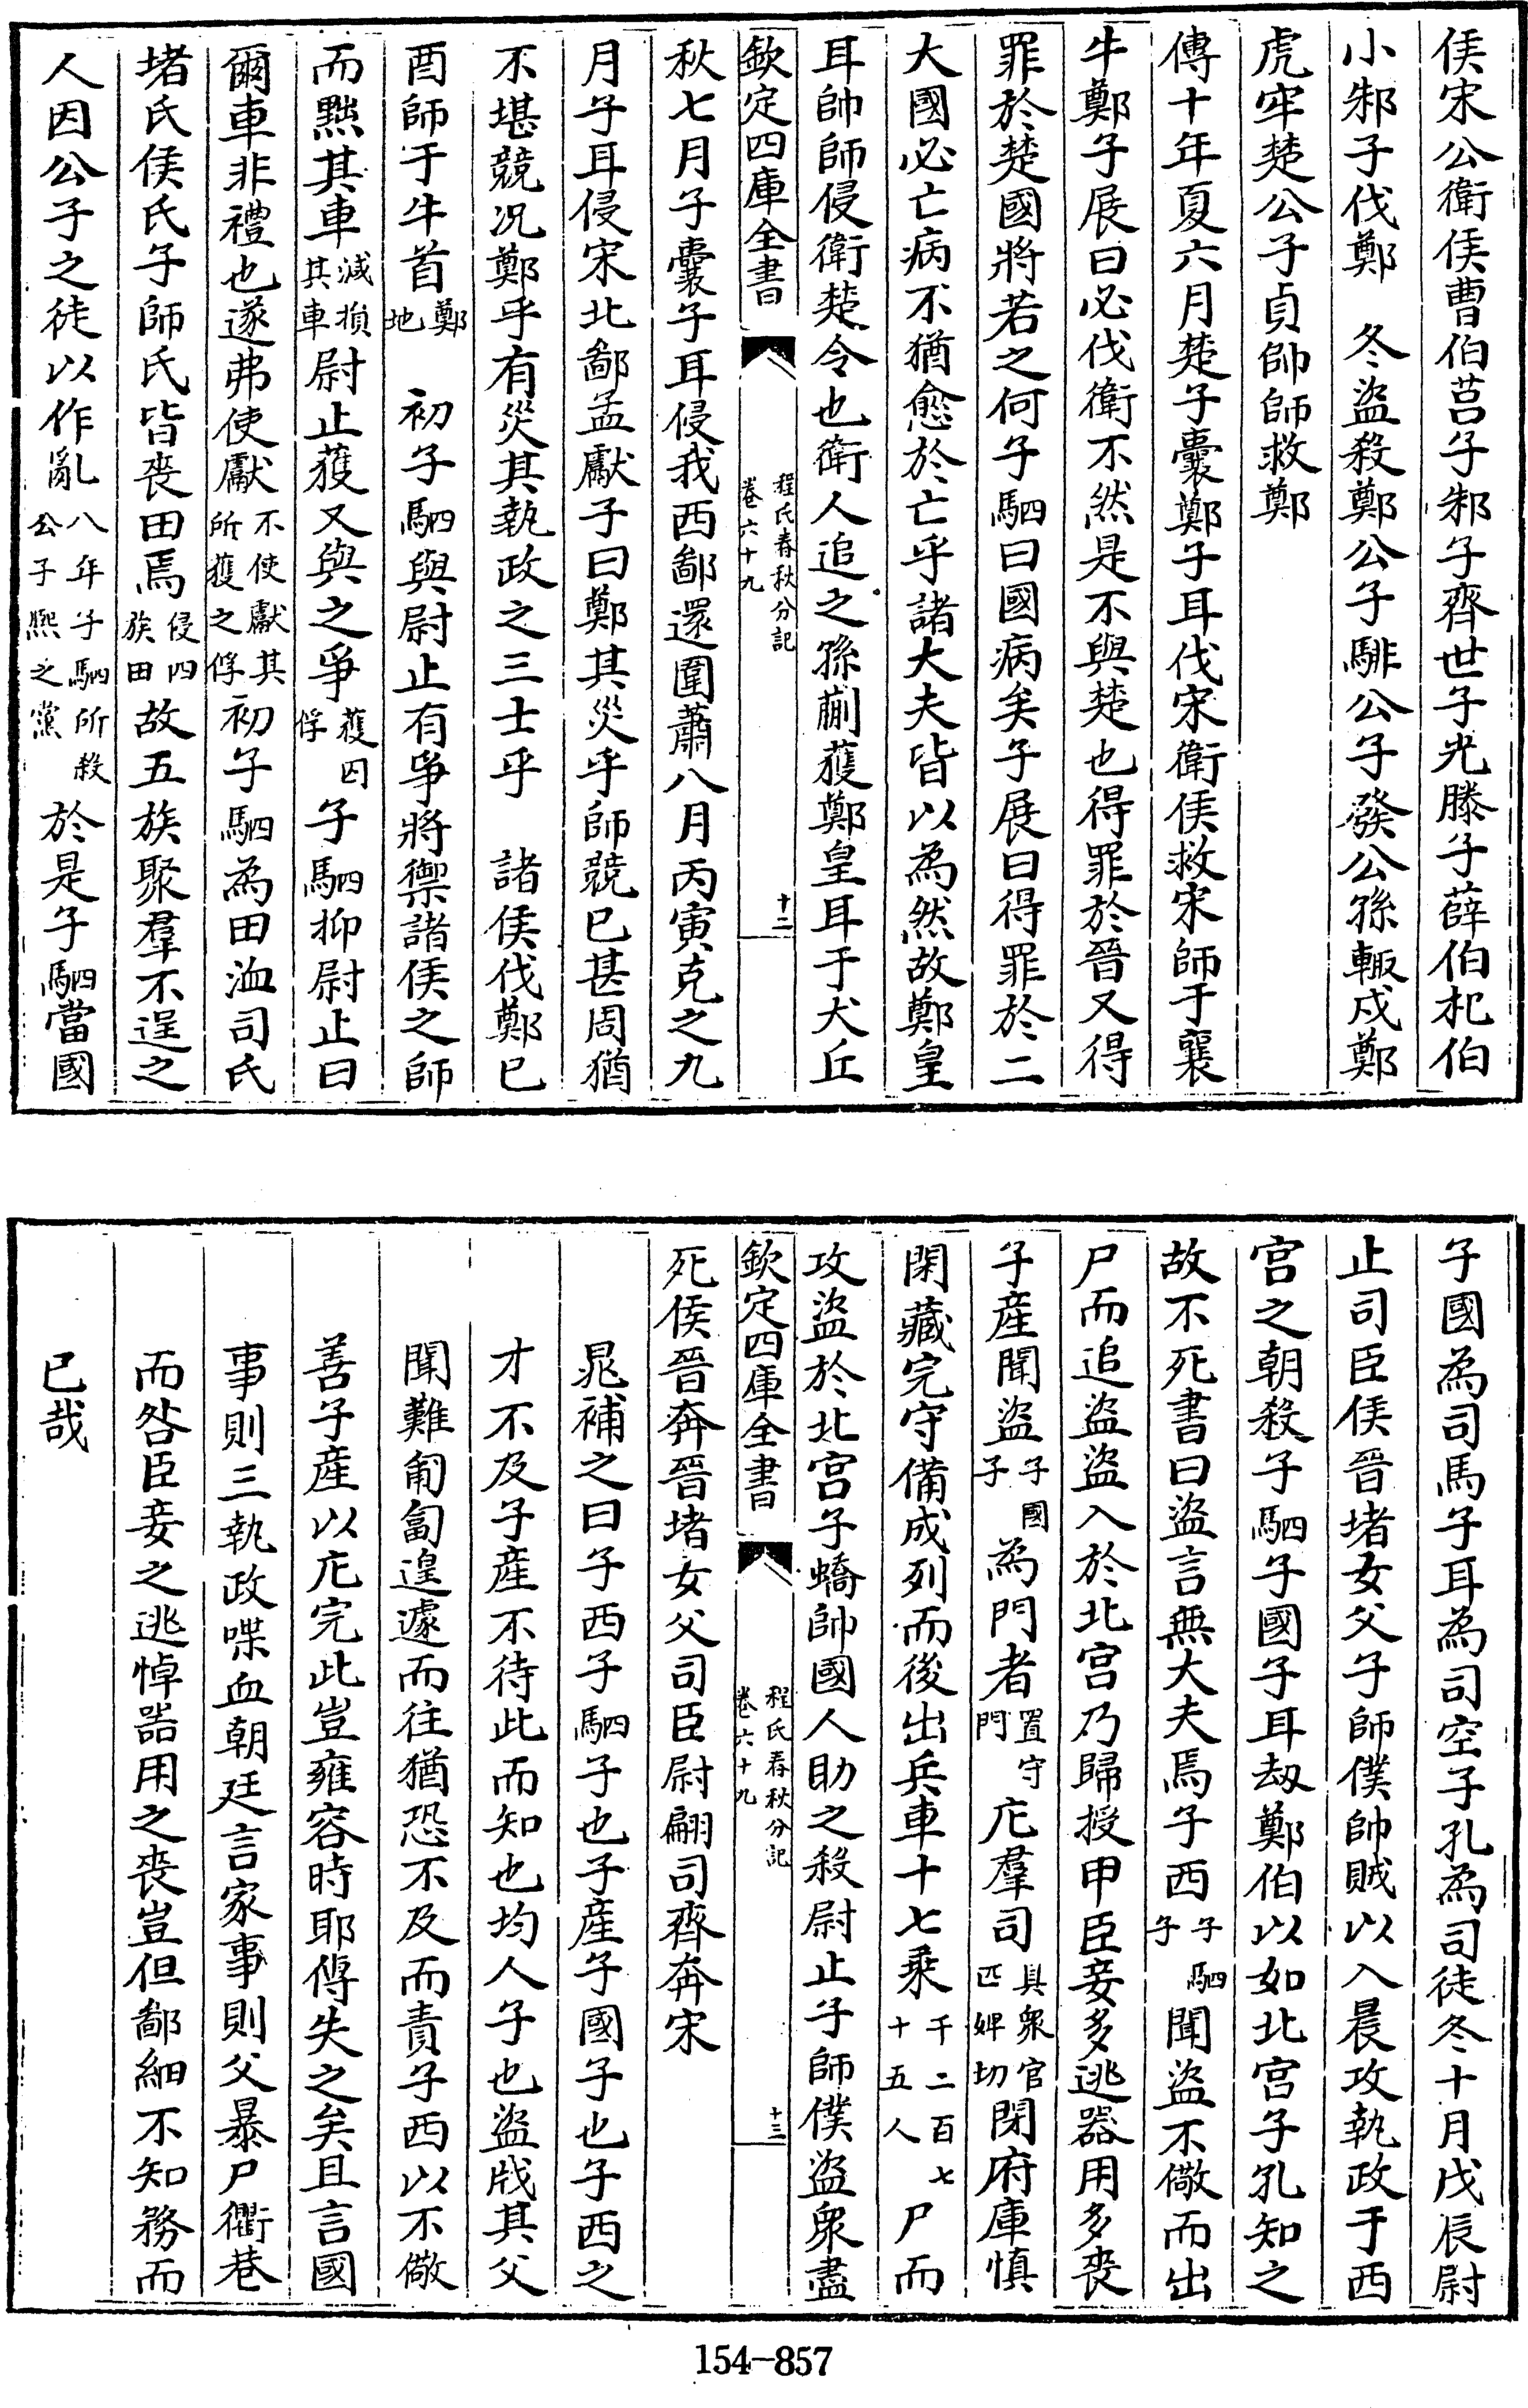 侯宋公衛侯曹伯莒子邾子齊世子光滕子薛伯杞伯
小邾子伐鄭　冬盜殺鄭公子騑公子發公孫輒戍鄭
虎牢楚公子貞帥師救鄭
傳十年夏六月楚子囊鄭子耳伐宋衛侯救宋師于襄
牛鄭子展曰必伐衛不然是不與楚也得罪於晉又得
罪於楚國將若之何子駟曰國病矣子展曰得罪於二
大國必亡病不猶愈於亡乎諸大夫皆以為然故鄭皇
耳帥師侵衛楚令也衛人追之孫蒯獲鄭皇耳于犬丘
欽定四庫全書　程氏春秋分記卷六十九　十二
秋七月子囊子耳侵我西鄙還圍蕭八月丙寅克之九
月子耳侵宋北鄙孟獻子曰鄭其災乎師競已甚周猶
不堪競況鄭乎有災其執政之三士乎　諸侯伐鄭已
酉師于牛首鄭地　初子駟與尉止有爭將禦諸侯之師
而黜其車減損其車尉止獲又與之爭獲囚俘子駟抑尉止曰
爾車非禮也遂弗使獻不使獻其所獲之俘初子駟為田洫司氏
堵氏侯氏子師氏皆喪田焉侵四族田故五族聚羣不逞之
人因公子之徒以作亂八年子駟所殺公子熙之黨於是子駟當國
子國為司馬子耳為司空子孔為司徒冬十月戊辰尉
止司臣侯晉堵女父子師僕帥賊以入晨攻執政于西
宫之朝殺子駟子國子耳劫鄭伯以如北宫子孔知之
故不死書曰盜言無大夫焉子西子駟子聞盜不儆而出
尸而追盜盜入於北宫乃歸授甲臣妾多逃器用多喪
子産聞盜子國子為門者置守門庀羣司具衆官匹婢切閉府庫慎
閑藏完守備成列而後出兵車十七乘千二百七十五人尸而
攻盜於北宫子蟜帥國人助之殺尉止子師僕盜衆盡
欽定四庫全書　程氏春秋分記卷六十九　十三
死侯晉奔晉堵女父司臣尉翩司齊奔宋
晁補之曰子西子駟子也子産子國子也子西之
才不及子産不待此而知也均人子也盜戕其父
聞難匍匐遑遽而往猶恐不及而責子西以不儆
善子産以庀完此豈雍容時耶傳失之矣且言國
事則三執政喋血朝廷言家事則父暴尸衢巷
而咎臣妾之逃悼噐用之喪豈但鄙細不知務而
已哉
154-857